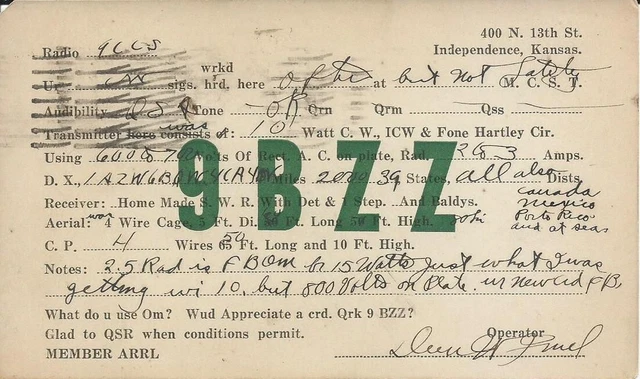 400 N. 13th St.
Radio 9CCS Independence, Kansas.
wrkd
Ur CW sigs. hrd, here often at but not lately M. C. S. T.
Audibility QSA Tone OK Qrn Qrm Qss
was
Transmitter here consists of: 10 Watt C. W., ICW & Fone Hartley Cir.
Using 600 to 700 Volts Of Rect. A. C. on plate, Rad. 2 to 3 Amps.
D. X., Miles 2000 39 States, all also Dists.
Canada
Receiver: Home Made S. W. R. With Det & 1 Step. And Baldys. Mexico
Porto Rico
and at seas
Aerial: 4 Wire Cage, 5 Ft. Dia. Ft. Long 50 Ft. High.
C. P. 4 Wires 65 50 Ft. Long and 10 Ft. High.
Notes: 2.5 Rad is FB Om fr 15 Watts Just what I was
getting wi 10, but 800 Volts on Plate. ur new crd FB,
What do u use Om? Wud Appreciate a crd. Qrk 9 BZZ?
Glad to QSR when conditions permit. Operator
MEMBER ARRL
9BZZ